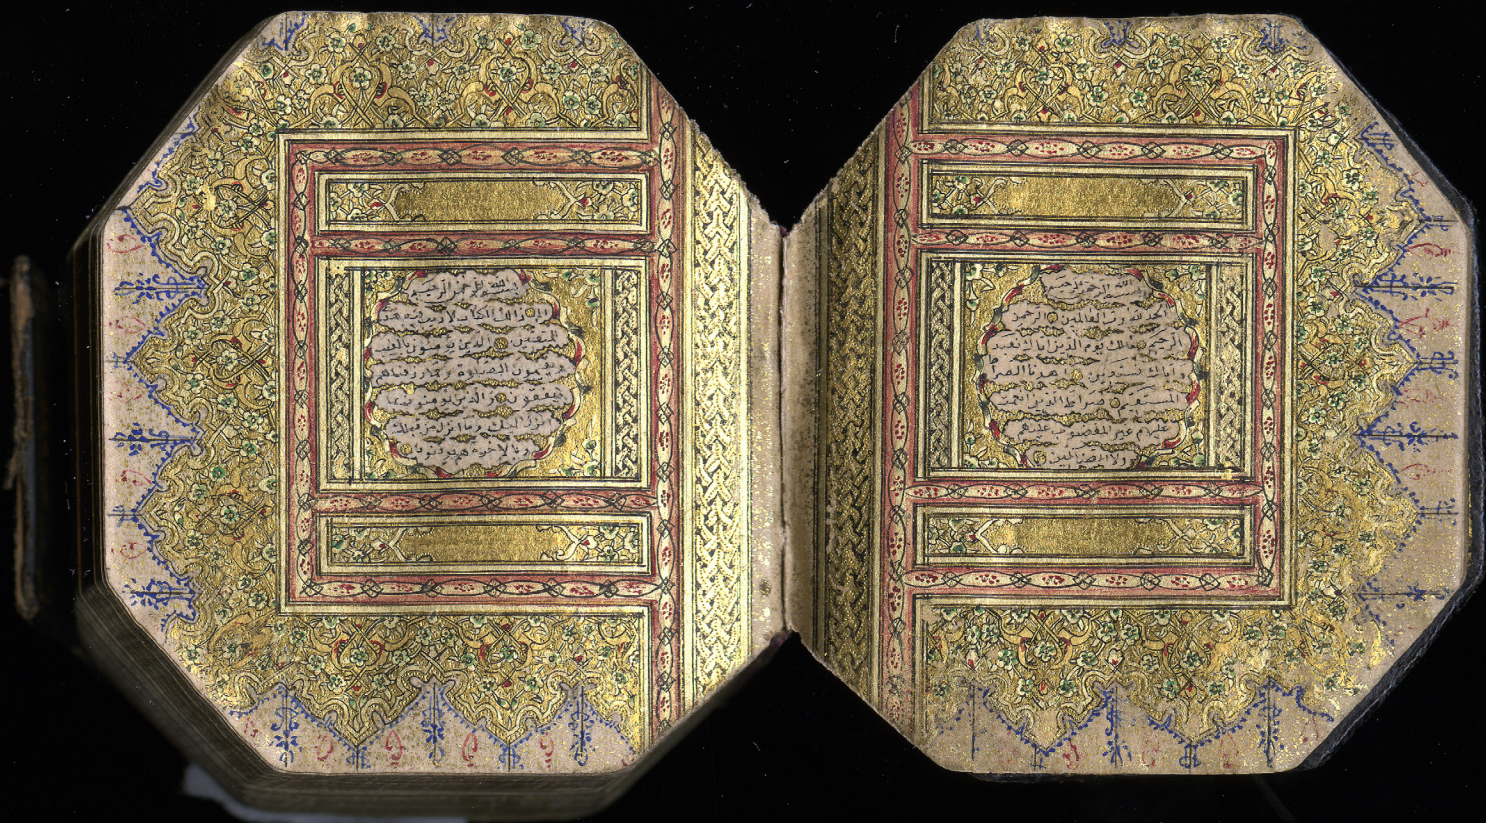 بسم الله الرحمن الرحيم
الحمد لله رب العالمين الرحمن
الرحيم مالك يوم الدين اياك نعبد
واياك نستعين اهدنا الصراط
المستقيم صراط الذين انعمت
عليهم غير المغضوب عليهم
ولا الضالين
بسم الله الرحمن الرحيم
الم ذلك الكتاب لا ريب فيه هدى
للمتقين الذين يؤمنون بالغيب
ويقيمون الصلوة ومما رزقناهم
ينفقون والذين يؤمنون بما
انزل اليك وما انزل من قبلك
وبالاخرة هم يوقنون